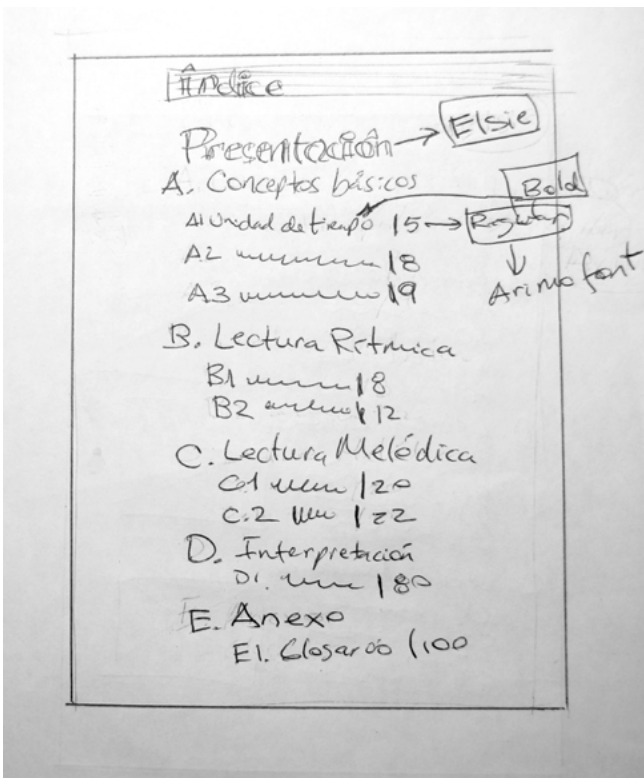 Índice
Presentación → Elsie
A. Conceptos básicos
Bold
A1 Unidad de tiempo 15 → Regular
A2 18
Arimo font
A3 19
B. Lectura Rítmica
B1 18
B2 12
C. Lectura Melódica
C1 | 20
C.2 | 22
D. Interpretación
D1. | 80
E. Anexo
E1. Glosario | 100